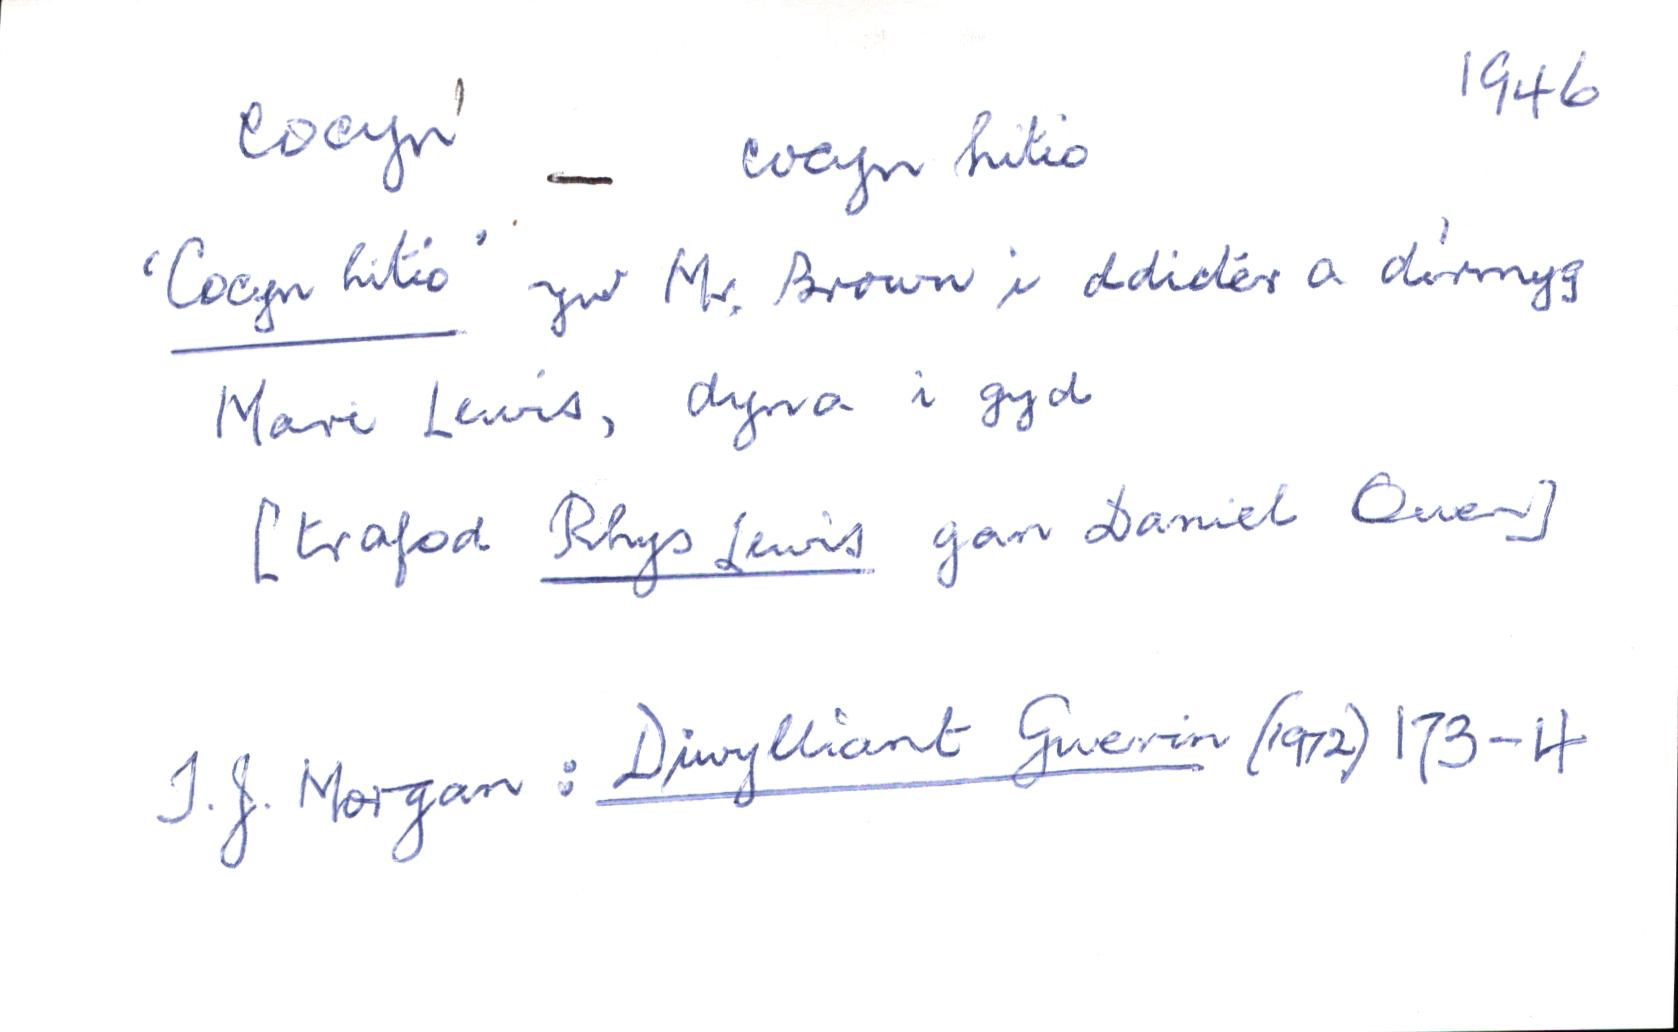 1946
cocyn¹ — cocyn hitio
'Cocyn hitio' yw Mr. Brown i ddidêr a dirmyg
Mari Lewis, dyna i gyd
[trafod Rhys Lewis gan Daniel Owen]
T.J. Morgan: Diwylliant Gwerin (1972) 173-4